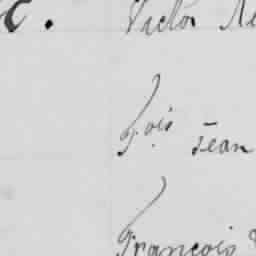 Victor
fois Jean
François